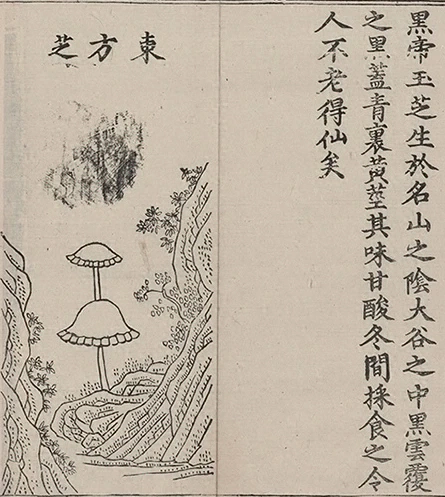 黑帝玉芝生於名山之陰大谷之中黑雲覆
之黑蓋青裏黃莖其味甘酸冬間採食之令
人不老得仙矣
東方芝